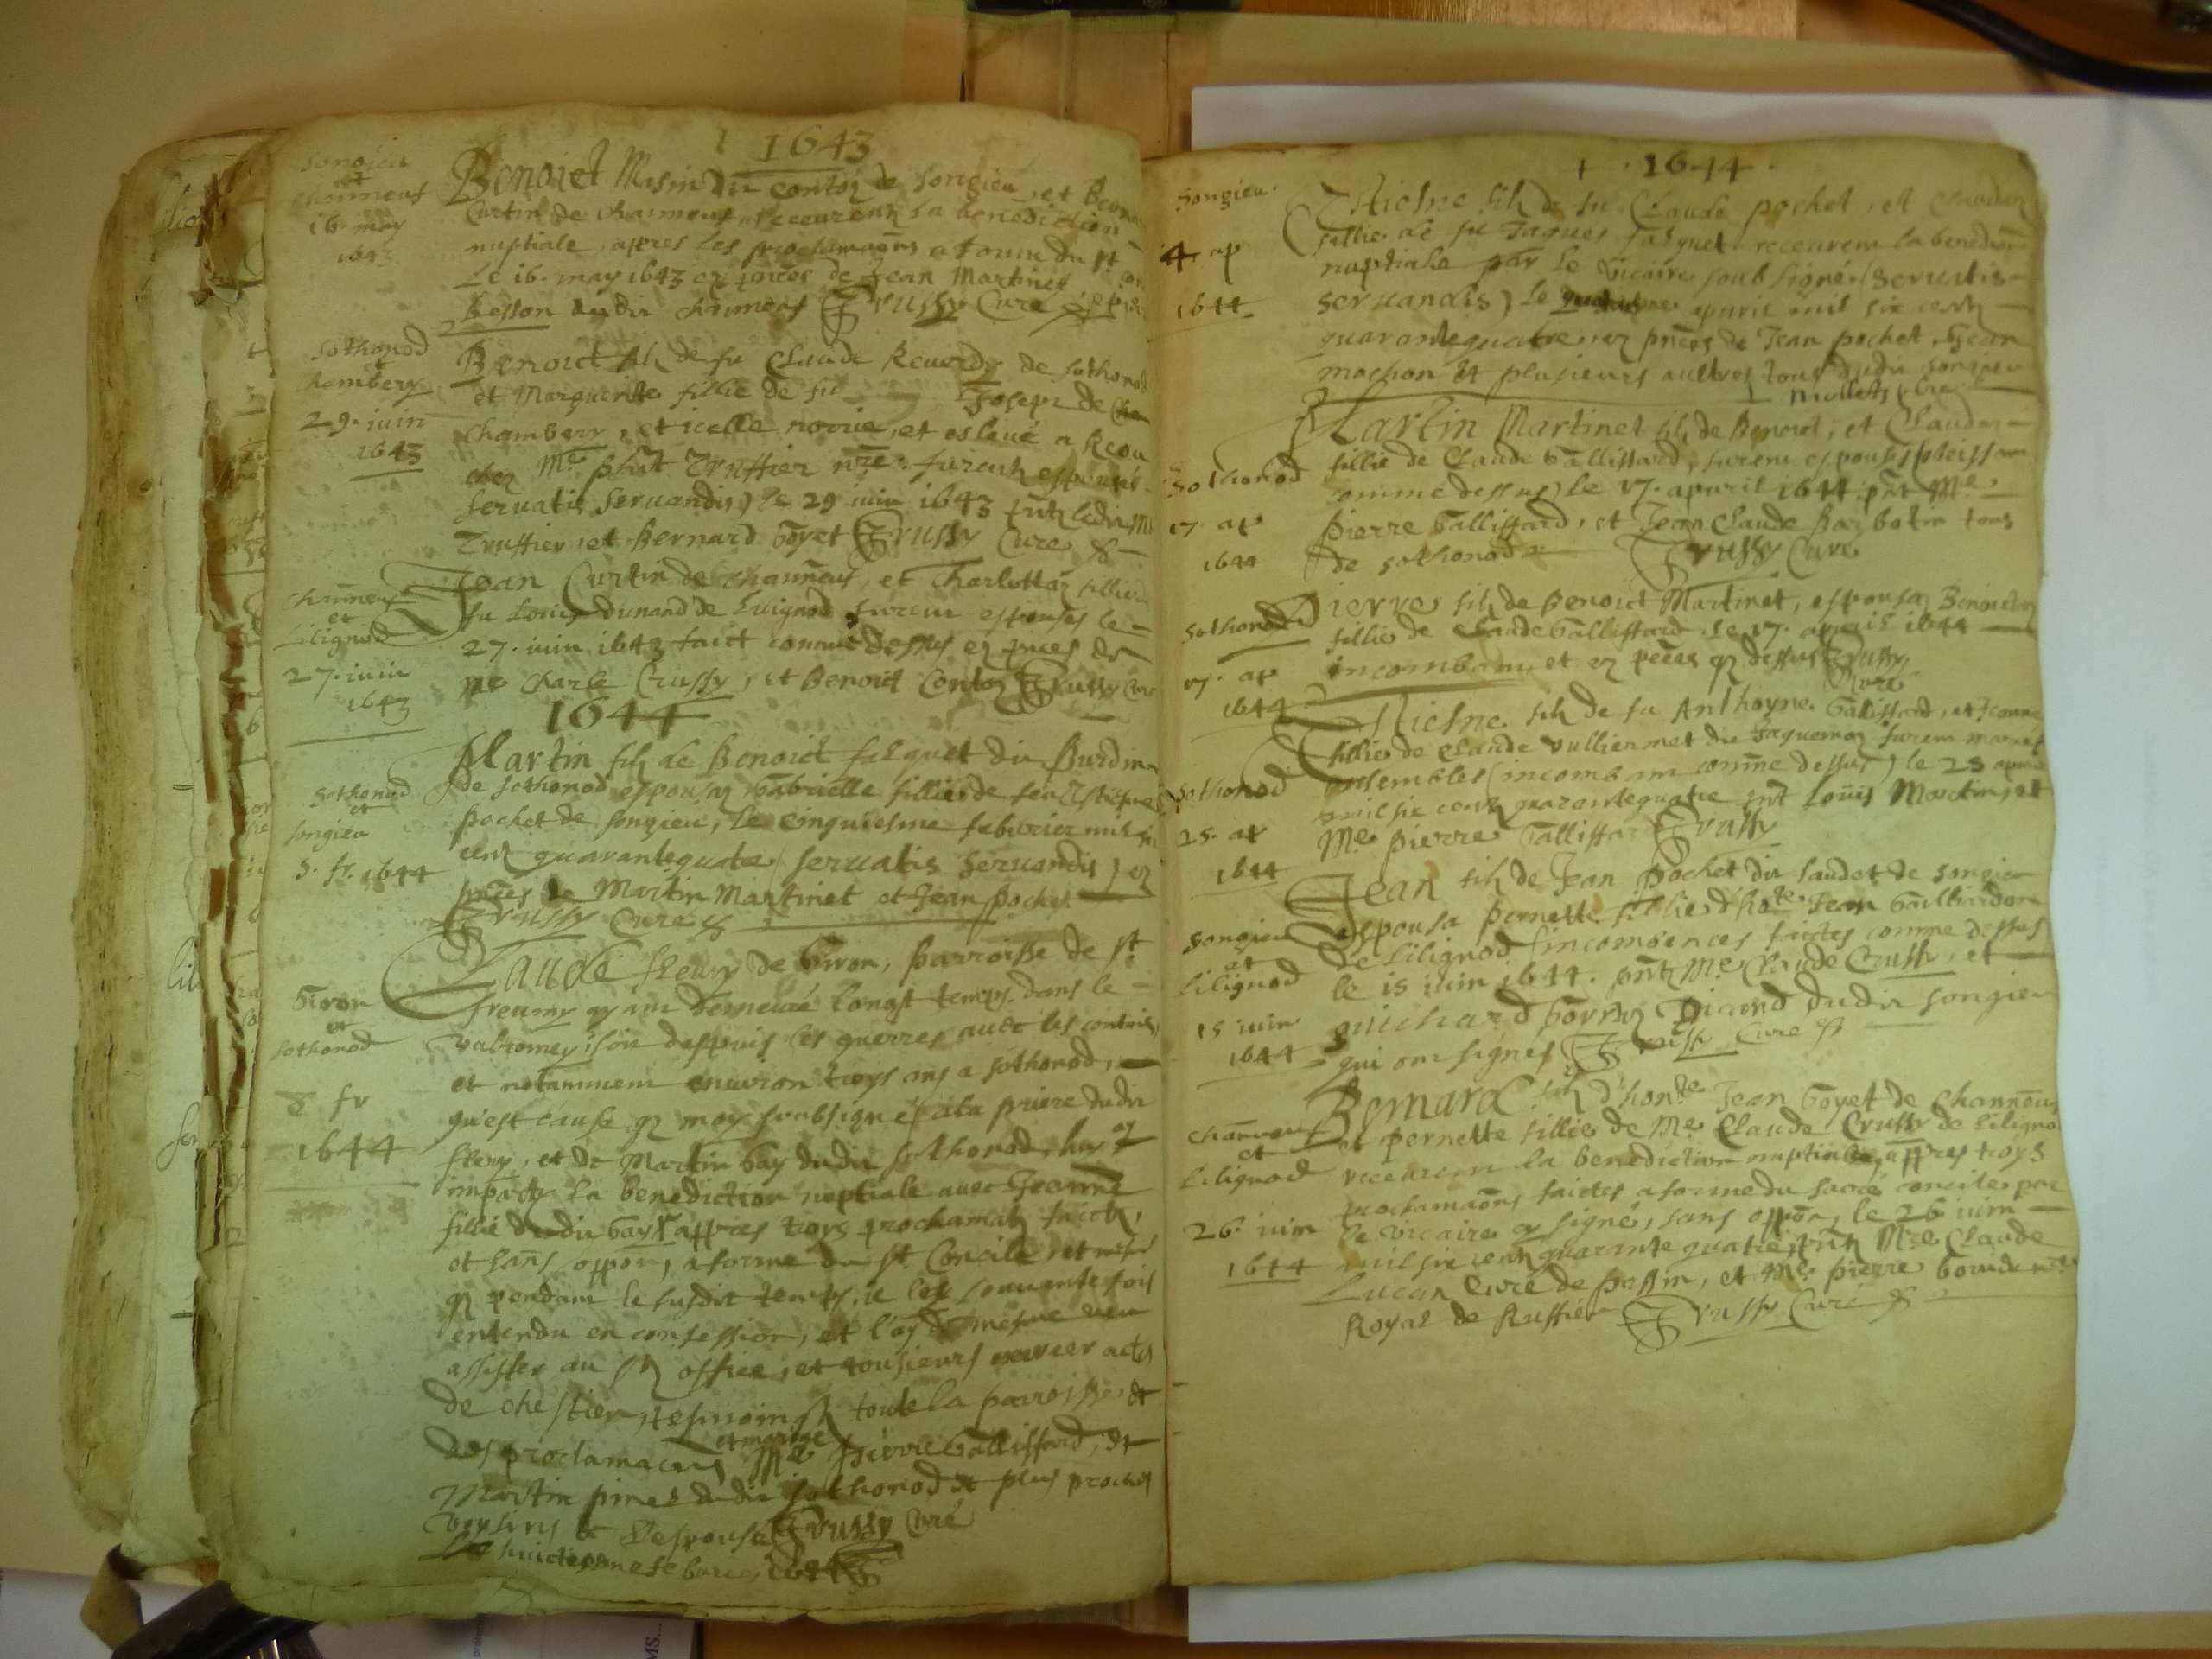 1643
songieu
et
charmeus
16. may
1643
Benoict Mesin dit contoz de songieu, et
Curtin de charmeus, receurent la benediction
nuptiale, appres les proclamaons a forme du st
Le 16. may 1643 ez pnces de Jean Martinet
besson dudit charmeus Trussy Curé
sothonod
et
chambery
29. iuin
1643
Benoict filz de fu Claude Reuerdy de sothonod
et Marguerite fillie de fu Joseph de
Chambery, et icelle norrie, et esleué a
chez Me phlt Truffier nre. furent espousés
seruatis seruandis) le 29 iuin 1643 pntz ledit Me
Truffier, et Bernard Goyet Trussy Curé
charmeus
et
Lilignod
27. iuin
1643
Jean Curtin de charmeus, et Charlottaz fillie
fu Louis Dunand de Luignod furent espousés le
27. iuin 1643 faict comme dessus ez pnces de
me Charle Crussy, et Benoict Contoz Trussy Curé
1644
sothonod
et
songieu
5. fr. 1644
Martin filz de Benoict fasquet dit Burdin
de sothonod espousaz Gabrielle fillie de feu Estiesne
pochet de songieu, le cinquiesme feburier mil six
centz quarantequatre (seruatis seruandis) ez
pnces de Martin Martinet et Jean pochet
Trussy Curé
Giron
et
sothonod
8 fr
1644
Claude fleury de Giron, parroisse de st
freumy ayant demeuré longst temps dans le
valromey, soit despuis les guerres auec les contois,
et notamment enuiron troys ans a sothonod,
qu'est cause qz moy soubsigné, a la priere dudit
fleury, et de Martin Gay dudit sothonod, hay
imparty la benediction nuptiale auec Jeanne
fillie dudit Gay, appres troys proclamaoz faictz,
et sans oppon, a forme du st Concile, et
qz pendant le susdit temps, ie les souuentefois
entendu en confession, et l'ay de mesme veu
assister au offices, et tousieurs exercer actes
de chestien, tesmoins toute la parroisse, et
des proclamaons et mariage Me pierre Gallissard, et
Martin pinet dudit sothonod et plus proches
voysins de l'espouse Trussy curé
Le huictiesme feburier 1644
1644
songieu.
4. ap
1644
Estiesne filz de fu Claude pochet, et Claudaz
fillie de fu Jaques fasquet receurent la benedion
nuptiale par le vicaire soub signé (seruatis
seruandis) le apuril mil six centz
quarantequatre, ez pnces de Jean pochet, Jean
mochon et plusieurs aultres tous dudit songieu
Mollet
sothonod
17. ap
1644
Martin Martinet filz de Benoict, et Claudaz
fillie de Claude Gallissard, furent espousés
comme dessus) le 17. apuril 1644. pnt Me
pierre Gallissard, et Jean Claude barbotin tous
de sothonod Trussy Curé
sothonod
17. ap
1644
Pierre filz de Benoict Martinet, espousaz Benoictaz
fillie de Claude Gallissard, le 17. apuril 1644
incombant et ez pnces qz dessus Trussy
Curé
sothonod
25. ap
1644
Estiesne filz de fu Anthoyne Gallissard, et Jeanne
fillie de Claude vulliermet dit Jaquemoz furent mariés
ensembles (incombant comme dessus) le 25 apuril
mil six centz quarantequatre pnt Louis Martin, et
Me pierre Gallissard Trussy
songieu
et
Lilignod
15 iuin
1644
Jean filz de Jean Pochet dit saudet de songieu
espousa pernette fillie d'hote Jean Gailliardon
de Lilignod (incombences faictes comme dessus
le 15 iuin 1644. pntz Me Claude Crussy, et
guichard dudit songieu
qui ont signés Trussy Curé
charmeus
et
Lilignod
26. iuin
1644
Bernard filz d'honte Jean Goyet de charmeus
et pernette fillie de Me Claude Crussy de Lilignod
receurent la benediction nuptiale, appres troys
proclamaons faictes a forme du sacré concile, par
le vicaire qz signé, sans oppon, le 26 iuin
mil six centz quarante quatre, pntz Mre Claude
Lucan Curé de passin, et Me pierre nre
Royal de Ruffieu Trussy Curé